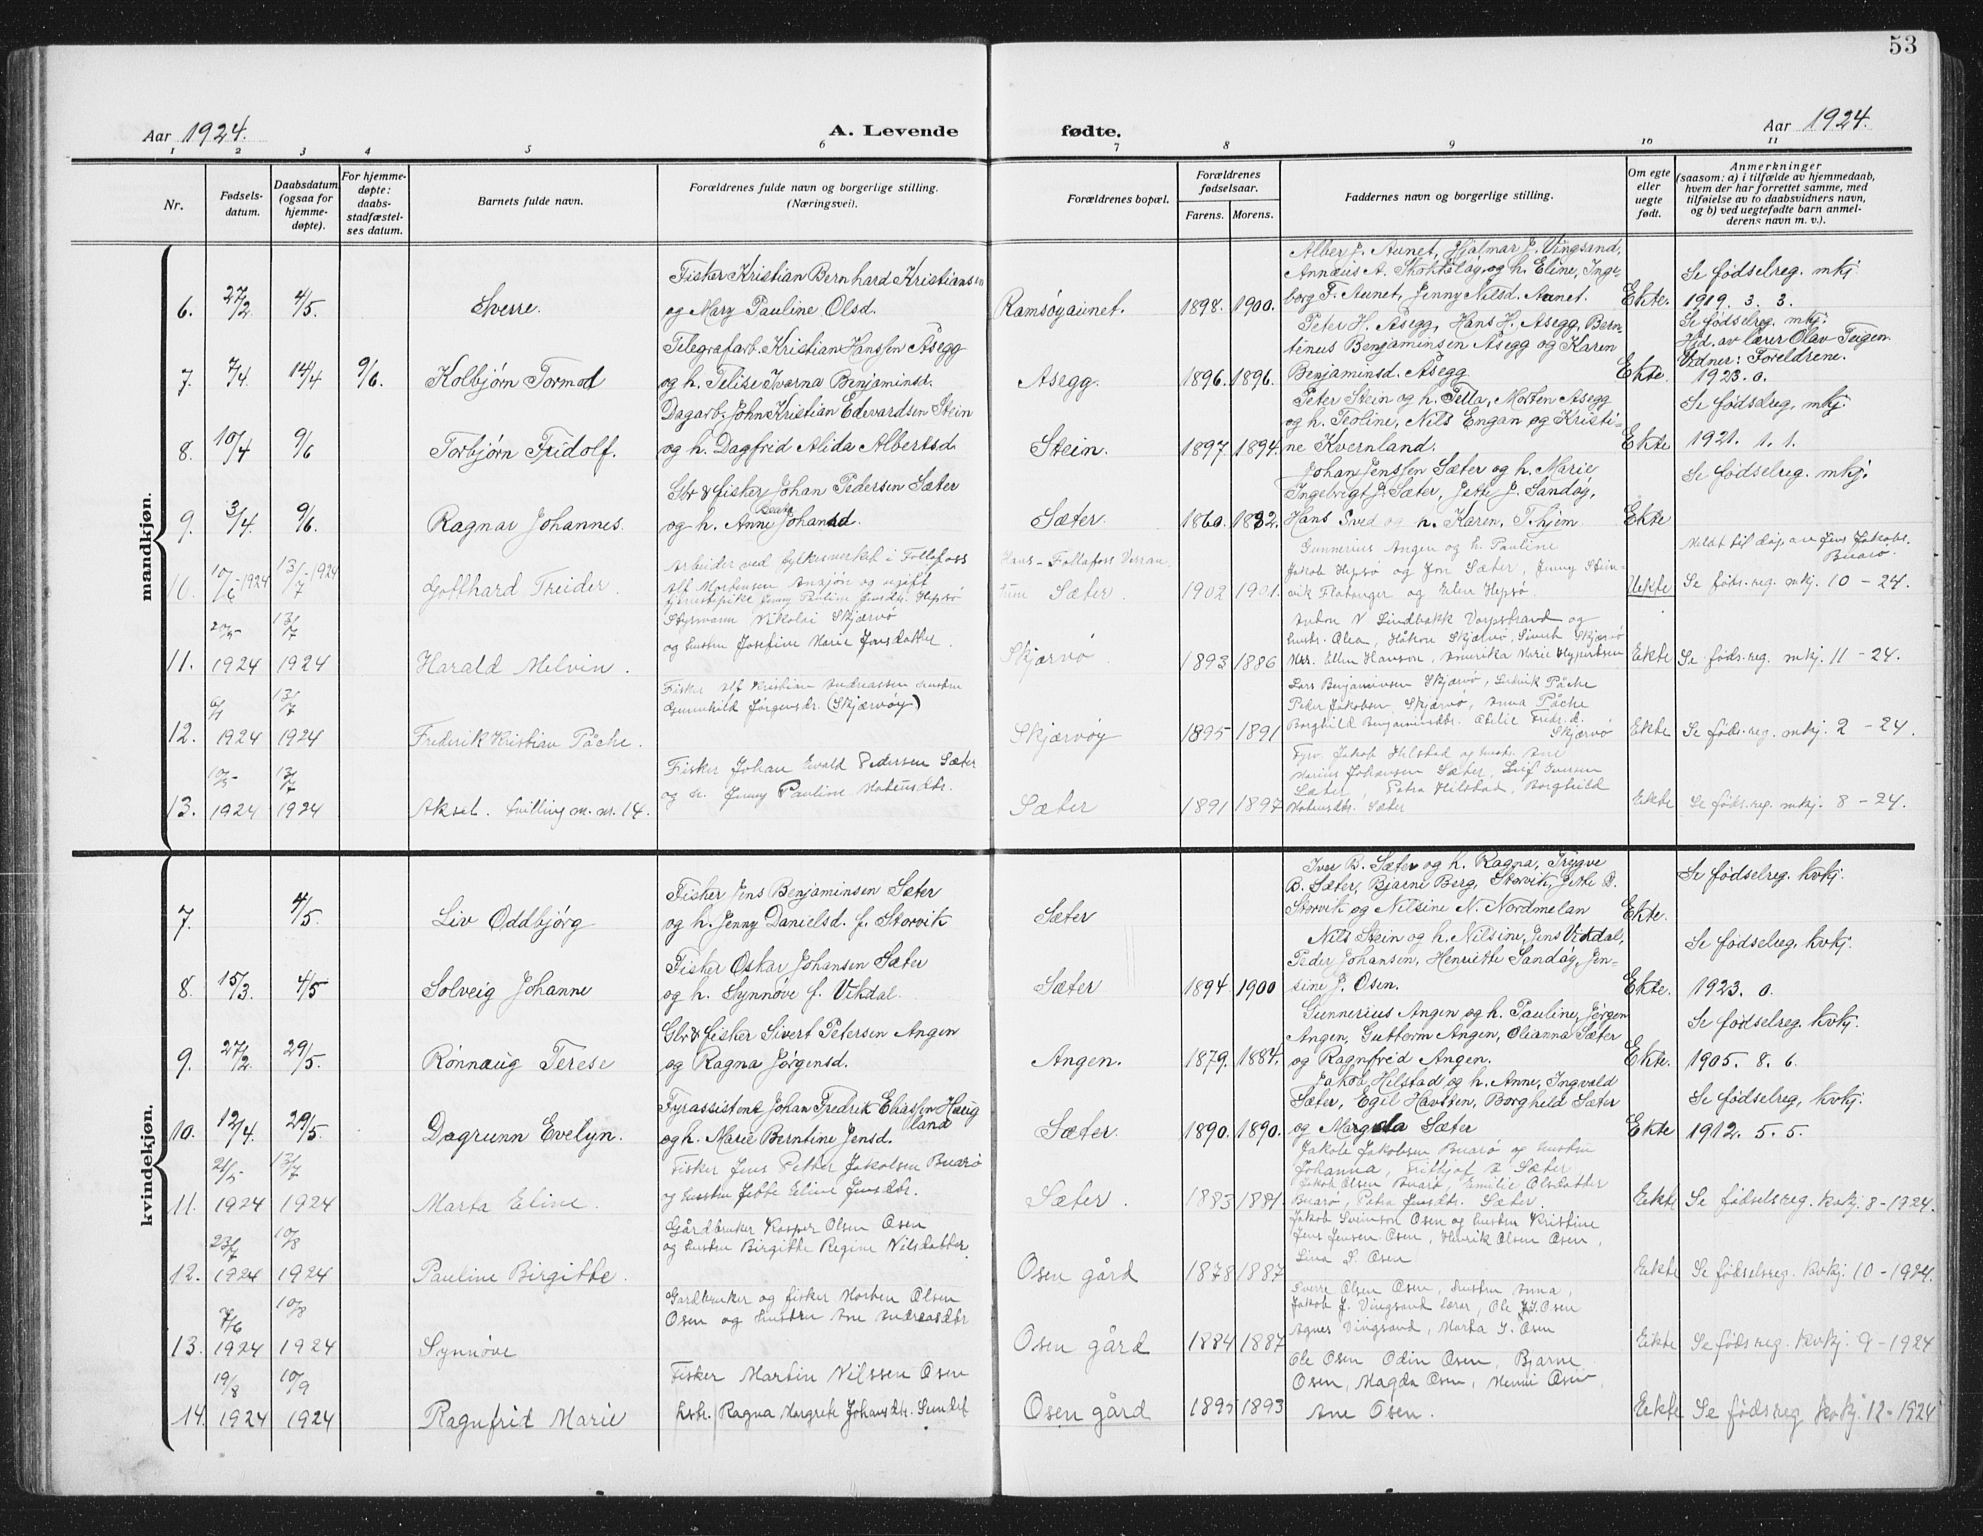 53
Aar 1924.
A. Levende
fødte.
Aar 1924.
1 2 3 4 5 6 7 8 9 10 11
Nr.
Fødsels-
datum.
Daabsdatum
(ogsaa for
hjemme-
døpte).
For hjemme-
døpte:
daabs-
stadfæstel-
ses datum.
Barnets fulde navn.
Forældrenes fulde navn og borgerlige stilling.
(Næringsvei).
Forældrenes bopæl.
Forældrenes
fødselsaar.
Farens. Morens.
Faddernes navn og borgerlige stilling.
Om egte
eller
uegte
født.
Anmerkninger
(saasom: a) i tilfælde av hjemmedaab,
hvem der har forrettet samme, med
tilføielse av to daabsvidners navn,
og b) ved uegtefødte barn anmel-
derens navn m. v.).
mandkjøn.
6. 27/2 4/5. Sverre.
Fisker Kristian Bernhard Kristiansen
og Mary Pauline Olsd.
Ramsøyaunet. 1898. 1900.
Alber J. Aunet, Hjalmar J. Vingsand,
Annæus A. Skokkeløy og h. Eline, Inge-
borg F. Aunet, Jenny Nilsd. Aunet.
Ekte.
Se fødselreg. mkj.
1919. 3. 3.
7. 7/4 14/4 9/6. Kolbjørn Tormod
Telegrafarb. Kristian Hanssen Asegg
og h. Telise Ivarna Benjaminsd.
Asegg. 1896. 1896.
Peter H. Asegg, Hans H. Asegg, Bern-
tinus Benjaminsen Asegg og Karen
Benjaminsd. Asegg
Ekte.
Se fødselreg. mkj.
Hjd. av lærer Olav Teigen.
Vidner: Foreldrene.
1923. 0.
8. 10/4 9/6 Torbjørn Fridolf.
Dagarb. John Kristian Edevardsen Stein
og h. Dagfrid Alida Albertsd.
Stein. 1897. 1894.
Peter Stein og h. Tella, Morten Asegg
og h. Teoline, Nils Engan og Kristi-
ne Kvernland.
Ekte
Se fødselreg. mkj.
1921. 1. 1.
9. 3/4 9/6. Ragnar Johannes.
Gbr & fisker Johan Pedersen Sæter
og h. Anne Beate Johansd.
Sæter. 1860. 1882.
Johan Jenssen Sæter og h. Marie
Ingebrigt J. Sæter, Jette J. Sandøy,
Hans Sved og h. Karen, T.hjem.
Ekte
Se fødselreg. mkj.
10. 10/6 1924 13/7 1924 Gotthard Treider.
Arbeider ved fylkesverket i Follafoss
Alf Mortensen Ansjøn og ugift
tjenestepike Jenny Pauline Jensdtr. Hepsø
Hans - Follafoss Verran
Sæter. 1902 1901.
Gunnerius Angen og h. Pauline
Jakob Hepsø og Jon Sæter, Jenny Stein-
vik Flatanger og Eline Hepsø.
Uekte
Meldt til dåp av Jens Jakobs.
Buarø.
Se føds.reg. mkj. 10 - 24.
11. 20/5 1924 13/7 1924 Harald Melvin.
Styrmann Nikolai Skjærvø
og hustru Josefine Marie Jensdatter.
Skjærvø 1893 1886
Anton V Lindbakk Vorpstrand og
hustr. Olea, Håkon Skjærvø, Sivert Skjærvø
Mrs. Ellen Hanson, Amerika Marie Hyppertsen
Eekte
Se føds.reg. mkj. 11 - 24.
12. 6/1 1924 13/7 1924 Frederik Kristian Påche.
Fisker Alf Kristian Andreassen hustru
Gunnhild Jørgensdr. (Skjærvøy)
Skjærvøy 1895 1891
Lars Benjaminsen Skjærvø, Ludvik Påche
Peder Jakobsen Skjærvø, Anna Påche
Borghild Benjaminsdtr. Otelie Freds.d.
Skjærvø
Ekte
Se føds.reg. mkj. 2 - 24.
13. 10/5 1924 13/7 1924 Aksel. tvilling m. nr. 14.
Fisker Johan Evald Pedersen Sæter
og h. Jenny Pauline Mateusdtr.
Sæter 1891 1897
Fyrv. Jakob Hilstad og hustr. Ane
Marius Johansen Sæter, Leif Iversen
Sæter, Petra Hilstad, Borghild
Mateusdtr. Sæter
Eekte
Se føds.reg. mkj. 8 - 24.
kvindekjøn.
7. 4/5. Liv Oddbjørg
Fisker Jens Benjaminsen Sæter
og h. Jenny Danielsd. f. Storvik
Sæter
Iver B. Sæter og h. Ragna, Trygve
B. Sæter, Bjarne Berg, Storvik, Jette D.
Storvik og Nilsine N. Nordmelan
Ekte.
Se fødselreg. kvkj.
8. 15/3. 4/5 Solveig Johanne
Fisker Oskar Johansen Sæter
og h. Synnøve f. Vikdal.
Sæter 1894 1900
Nils Stein og h. Nilsine, Jens Vikdal,
Peder Johansen, Henriette Sandøy, Jen-
sine J. Osen.
Ekte.
Se fødselreg. kvkj.
1923. 0.
9. 27/2. 29/5. Rønnaug Terese
Gbr & fisker Sivert Petersen Angen
og Ragna Jørgensd.
Angen. 1879. 1884.
Gunnerius Angen og h. Pauline, Jørgen
Angen, Guttorm Angen, Oleanna Sæter
og Ragnfred Angen.
Ekte.
Se fødselreg. kvkj.
1905. 8. 6.
10. 12/4. 29/5. Dagrunn Evelyn.
Fyrassistent Johan Fredrik Eliassen Haug
land
og h. Marie Berntine Jensd.
Sæter. 1890. 1890.
Jakob Hilstad og h. Anne, Ingvald
Sæter, Egil Havsten, Borghild Sæter
og Magda Sæter
Ekte
Se fødselreg. kvkj.
1912. 5. 5.
11. 21/5 1924 13/7 1924 Marta Eline.
Fisker Jens Petter Jakobsen Buarø
og hustru Jette Eline Jensdtr.
Sæter. 1883 1881.
Jakob Jakobsen Buarø og hustru
Johanna, Fritjof A Sæter
Jakob Olsen Buarø, Emilie Olsdatter
Buarø, Petra Jensdtr. Sæter.
Eekte
Se fødselsreg. kvkj. 8-1924.
12. 23/7 1924 10/8 1924 Pauline Birgitte.
Gårdbruker Kasper Olsen Osen
og hustru Birgitte Regine Nilsdatter.
Osen gård 1878 1887
Jakob Sveinson Osen og hustru Kristine
Jens Jensen Osen, Henrik Olsen Osen,
Lina S. Osen
Eekte
Se fødselsreg. kvkj. 10-1924.
13. 7/6 1924 10/8 1924 Synnøve
Gardbruker og fisker Morten Olsen
Osen og hustru Ane Andreasdtr
Osen gård 1884 1887
Sverre Olsen Osen, hustru Anna,
Jakob J. Vingsand lærer, Ole J. Osen
Agnes Vingsand, Marta J. Osen
Eekte
Se fødsreg. kvkj. 9-1924
14. 19/8 1924 10/9 1924 Ragnfrid Marie
Fisker Martin Nilssen Osen
hstr. Ragna Margrete Johansdtr. Sundet
Osen gård 1895 1893
Ole Osen Odin Osen, Bjarne
Osen, Magda Osen, Menni Osen,
Ane Osen.
Eekte
Se fødsreg kvkj. 12-1924